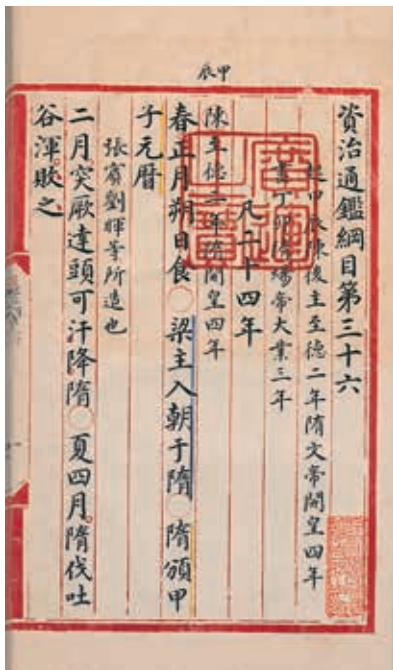 甲辰
資治通鑑綱目第三十六
起甲辰陳後主至德二年隋文帝開皇四年
盡丁卯隋煬帝大業三年
凡二十四年
陳至德二年隋開皇四年
春正月朔日食○梁主入朝于隋○隋頒甲
子元曆
張賓劉暉等所造也
二月突厥達頭可汗降隋○夏四月隋伐吐
谷渾敗之